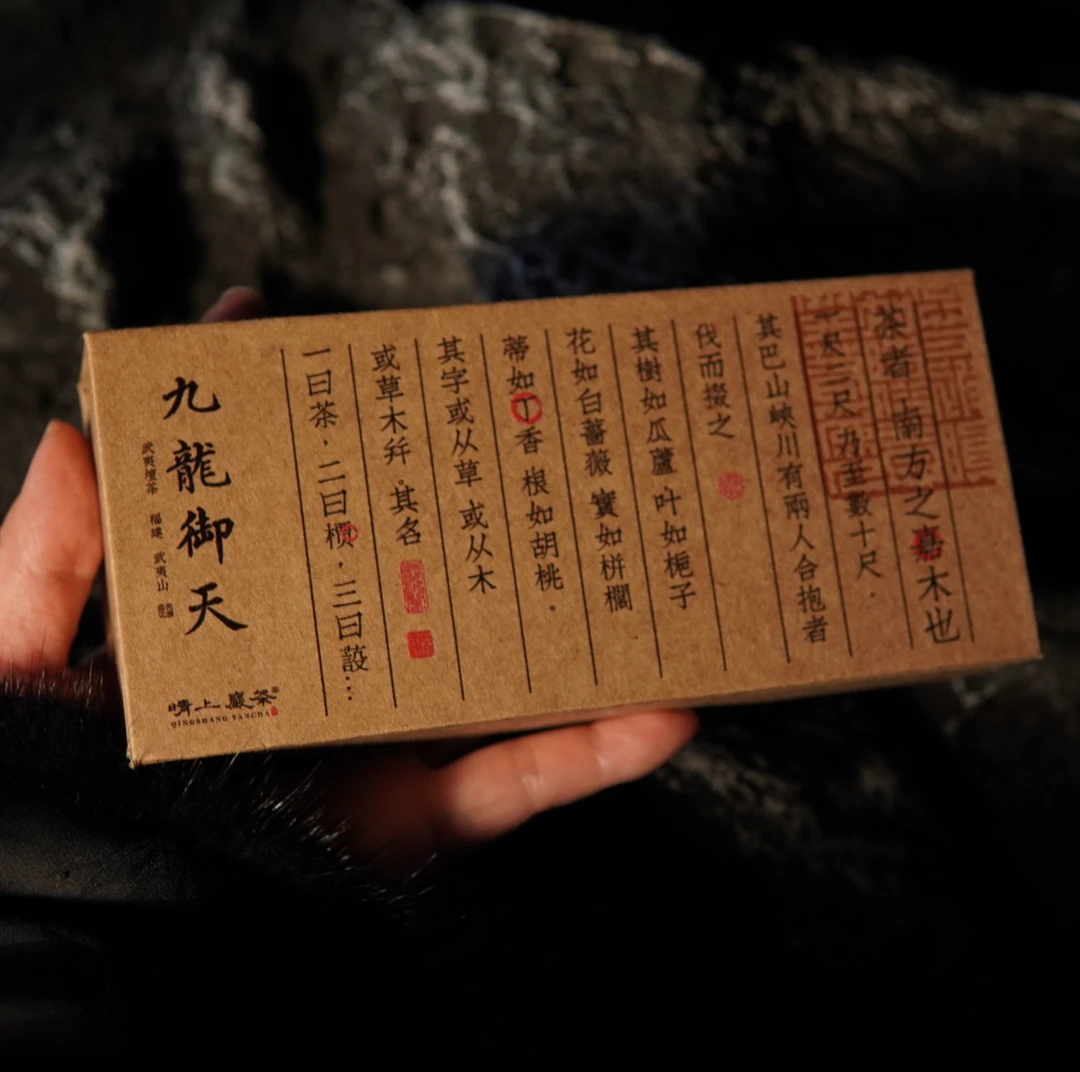 茶者 南方之嘉木也
一尺二尺 乃至數十尺.
其巴山峽川有兩人合抱者
伐而掇之
其樹如瓜蘆 叶如梔子
花如白薔薇 實如栟櫚
蒂如丁香 根如胡桃.
其字或从草 或从木
或草木并.其名
一曰茶,二曰檟,三曰蔎...
九龍御天
武夷壇茶 福建 武夷山
晴上巖茶
QINGSHANG YANCHA